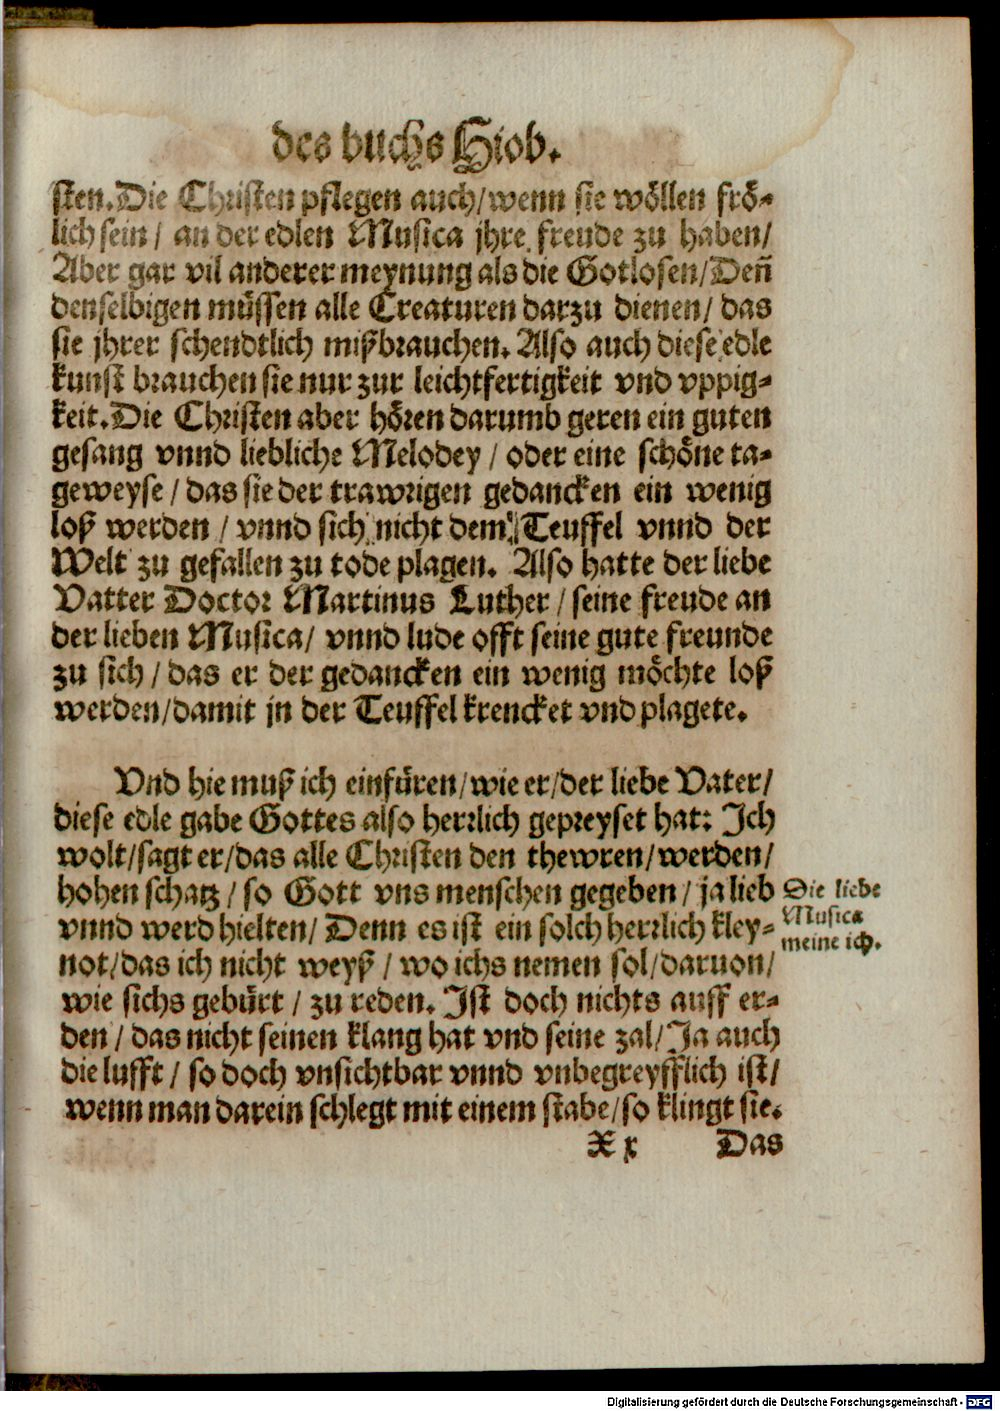 des buchs Hiob.
sten. Die Christen pflegen auch/ wenn sie wöllen frö-
lich sein/ an der edlen Musica jhre freude zu haben/
Aber gar vil anderer meynung als die Gotlosen/ Deñ
denselbigen müssen alle Creaturen darzu dienen/ das
sie jhrer schendtlich mißbrauchen. Also auch diese edle
kunst brauchen sie nur zur leichtfertigkeit vnd vppig-
keit. Die Christen aber hören darumb geren ein guten
gesang vnnd liebliche Melodey/ oder eine schöne ta-
geweyse/ das sie der trawrigen gedancken ein wenig
loß werden/ vnnd sich nicht dem Teuffel vnnd der
Welt zu gefallen zu tode plagen. Also hatte der liebe
Vatter Doctor Martinus Luther/ seine freude an
der lieben Musica/ vnnd lude offt seine gute freunde
zu sich/ das er der gedancken ein wenig möchte loß
werden/ damit jn der Teuffel krencket vnd plagete.
Vnd hie muß ich einfüren/ wie er/ der liebe Vater/
diese edle gabe Gottes also herrlich gepreyset hat: Ich
wolt/ sagt er/ das alle Christen den thewren/ werden/
hohen schatz/ so Gott vns menschen gegeben/ ja lieb
vnnd werd hielten/ Denn es ist ein solch herrlich kley-
not/ das ich nicht weyß/ wo ichs nemen sol/ daruon/
wie sichs gebürt/ zu reden. Ist doch nichts auff er-
den/ das nicht seinen klang hat vnd seine zal/ Ja auch
die lufft/ so doch vnsichtbar vnnd vnbegreyfflich ist/
wenn man darein schlegt mit einem stabe/ so klingt sie.
Xx Das
Die liebe
Musica
meine ich.
Digitalisierung gefördert durch die Deutsche Forschungsgemeinschaft - DFG